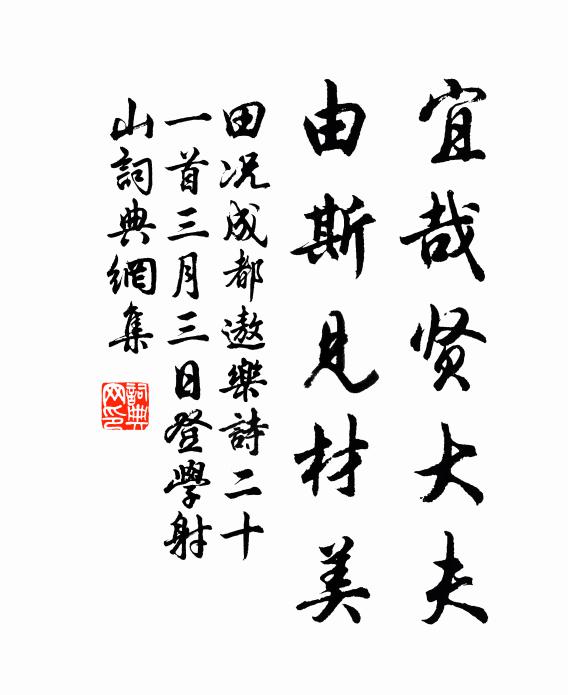 宜哉贤大夫
由斯見材美
田况成都遨樂詩二十
一首三月三日登學射
山詞典網集
詞典
网印